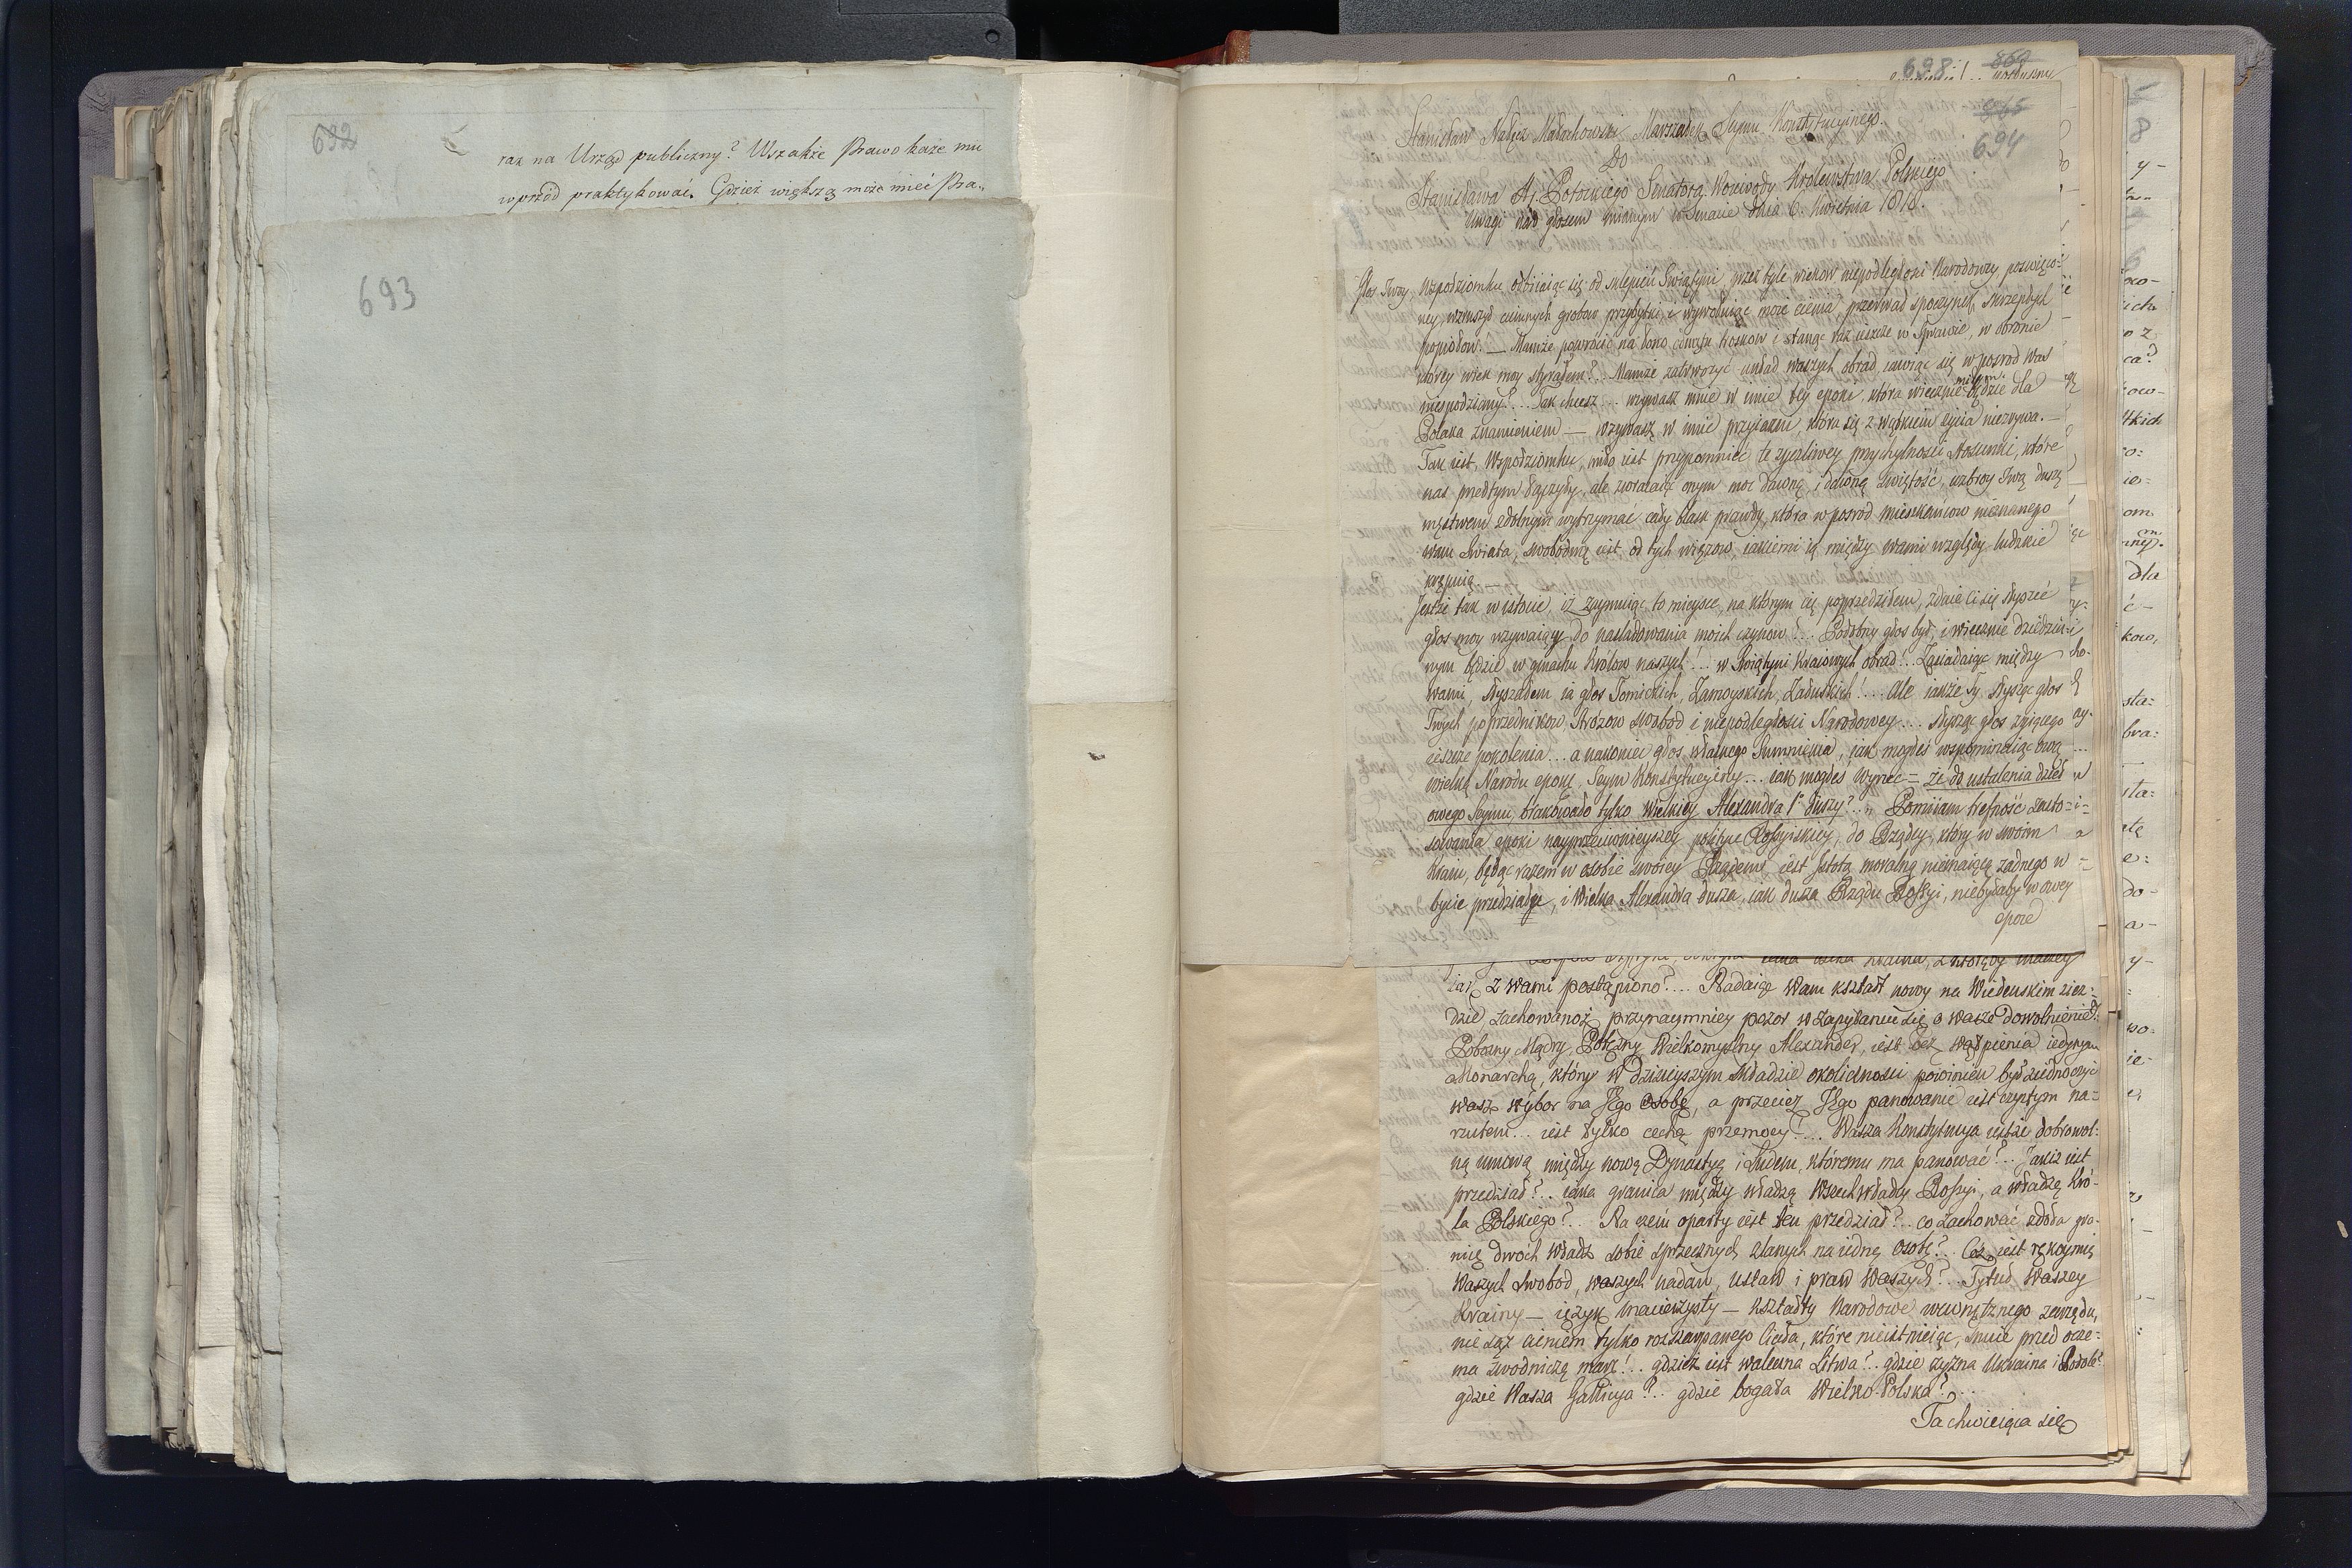 692
raz na Urząd publiczny? Wszakże Prawo każe mu
wprzód praktykować. Gdzież większą może mieć Pra„
693
698 860
865
694
Stanisław Nałęcz Małachowski Marszałek Seymu Konstytucyinego.
Do
Stanisława Hr. Potockiego Senatora Woiewody Królewstwa Polskiego
Uwagi nad głosem mianym w Senacie dnia 6. Kwietnia 1818.
Głos Twoy, Współziomku, odbiiaiąc się od sklepień Świątyni, przez tyle wieków niepodległości Narodowey poświęco-
ney, wzruszył ciemnych grobów przybytki, i wywołuiąc moie cienia, przerwał spoczynek skrzepłych
popiołów. — Mamże powrócić na łono i stanąć raz ieszcze w Sprawie, w obronie
którey wiek moy styrałem?... Mamże zatrworzyć układ waszych obrad, iawiąc się w pośrod Was
niespodziany?... Tak chcesz... wzywasz mnie w imie tey epoki, która wiecznie miłym będzie dla
Polaka znamieniem — wzywasz w imie przyiaźni, która się z wątkiem życia niezrywa. —
Tak iest, Współziomku, miło iest przypomnieć te życzliwey przychylności stosunki, które
nas przedtym łączyły, ale zwracaiąc onym moc dawną i dawną świętość, uzbroy Twą duszę
męstwem zdolnym wytrzymać cały blask prawdy, która w pośrod mieszkańców nieznanego
wam Świata, swobodną iest od tych więzów, iakiemi ią między wami względy ludzkie
krępuią. —
Jestże tak w istocie, iż zaymuiąc to mieysce, na którym cię poprzedziłem, zdaie ci się słyszeć
głos moy wzywaiący do naśladowania moich czynów?... Podobny głos był, i wiecznie dziedzicz-
nym będzie w gmachu Królów naszych!... w Świątyni Kraiowych obrad!... Zasiadaiąc między
wami, słyszałem ia głos Tomickich, Zamoyskich, Załuskich!... Ale iakże Ty, słysząc głos
Twych poprzedników, Stróżów swobod i niepodległości Narodowey... słysząc głos żyiącego
ieszcze pokolenia... a nakoniec głos własnego Sumnienia, iak mogłeś wspominaiąc ową
wielką Narodu epokę, Seym Konstytucyiny... iak mogłeś wyrzec = że do ustalenia dzieł
owego Seymu, brakowało tylko wielkiey Alexandra I° duszy?... „ Pomiiam trafność zasto-
sowania epoki nayprzeciwnieyszey polityce Rossyiskiey, do Rządcy, który w swoim
Kraiu, będąc razem w osobie swoiey Rządem, iest istotą moralną nieznaiącą żadnego w
bycie przedziału, i Wielka Alexandra dusza, iak dusza Rządu Rossyi, niebyłaby w owey
epoce
iak z wami postąpiono?... Nadaiąc Wam kształt nowy na Wiedeńskim ziez-
dzie, zachowanoż przynaymniey pozor w zapytaniu się o wasze dowolnienie?
Pobożny, Mądry, Potężny, Wielkomyślny Alexander, iest bez wątpienia iedynym
Monarchą, który w dzisieyszym składzie okoliczności powinien był ziednoczyć
wasz wybor na Jego osobę, a przecież Jego panowanie iest czystym na-
rzutem... iest tylko cechą przemocy?... Wasza Konstytucya iestże dobrowol-
ną umową między nową Dynastyą i Ludem, któremu ma panować?... Jakiż iest
przedział?... iaka granica między władzą Wszechwładcy Rossyi, a władzą Kró-
la Polskiego?... Na czem oparty iest ten przedział?... co zachować zdoła gra-
nicę dwoch władz sobie sprzecznych zlanych na iedną osobę?... Coż iest rękoymią
Waszych Swobod, waszych nadań, ustaw i praw Waszych?... Tytuł Waszey
Krainy — ięzyk macierzysty — kształty Narodowe wewnętznego zarządu,
nie sąż cieniem tylko rozszarpanego Ciała, które nieistnieiąc, snuie przed ocze-
ma zwodniczą marę!... gdzież iest waleczna Litwa?... gdzie żyzna Ukraina i Podole?
gdzie Wasza Gallicya?... gdzie bogata Wielko-Polska?...
Ta chwieiąca się